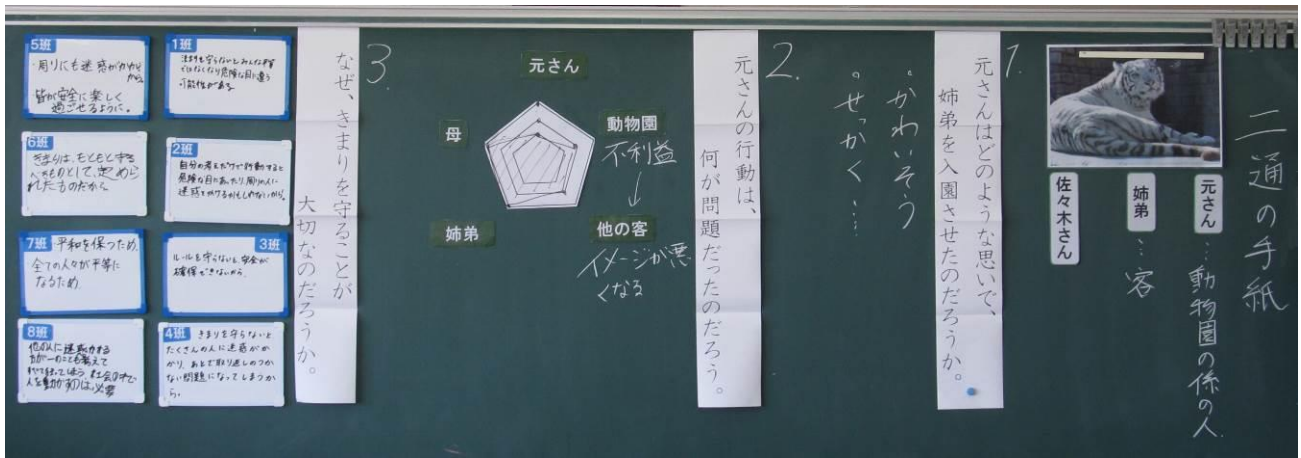 二通の手紙
元さん…動物園の係の人
姉弟…客
佐々木さん
1.
元さんはどのような思いで、
姉弟を入園させたのだろうか。
。かわいそう
。せっかく…
2.
元さんの行動は、
何が問題だったのだろう。
元さん
母
動物園
不利益
↓
姉弟
他の客
イメージが悪
くなる
3.
なぜ、きまりを守ることが
大切なのだろうか。
1班
きまりを守らないとみんな平等
ではなくなり危険な目に遭う
可能性がある。
2班
自分の考えだけで行動すると
危険な目にあったり、周りの人に
迷惑をかけるかもしれないから。
3班
ルールを守らないと、安全が
確保できないから。
4班
きまりを守らないと
たくさんの人に迷惑がか
かり、あとで取り返しのつか
ない問題になってしまうか
ら。
5班
・周りにも迷惑がかかる
から
・皆が安全に楽しく
過ごせるように。
6班
きまりは、もともと守る
べきものとして、定めら
れたものだから
7班
平和を保つため。
全ての人々が平等に
なるため。
8班
他の人に迷惑かける
万が一のことも考えて
社会の中で
人を動かす